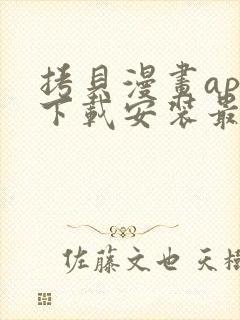 拷貝漫畫ap
下載安裝最
佐藤文也 天樹